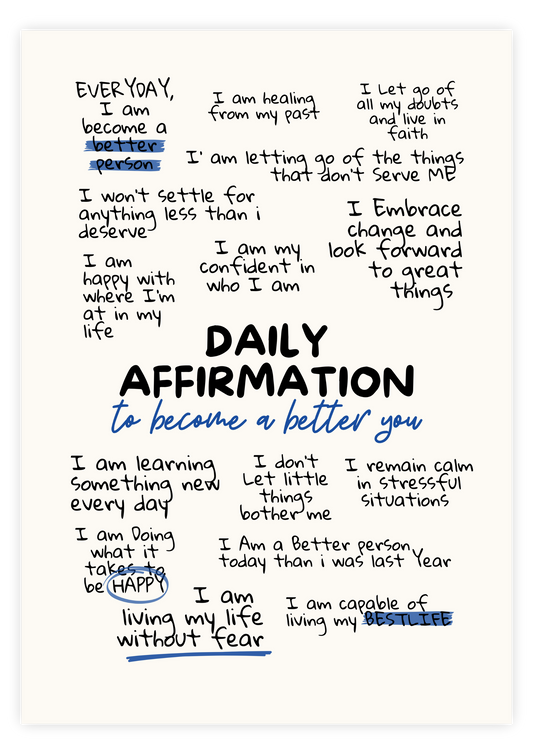 EVERYDAY,
I am
become a
better
person
I am healing
from my past
I Let go of
all my doubts
and live in
faith
I' am letting go of the things
that don't Serve ME
I won't settle for
anything less than i
deserve
I Embrace
change and
look forward
to great
things
I am my
confident in
who I am
I am
happy with
where I'm
at in my
life
DAILY
AFFIRMATION
to become a better you
I am learning
something new
every day
I don't
Let little
things
bother me
I remain calm
in stressful
situations
I am Doing
what it
takes to
be HAPPY
I Am a Better person
today than i was last Year
I am
living my life
without fear
I am capable of
living my BESTLIFE